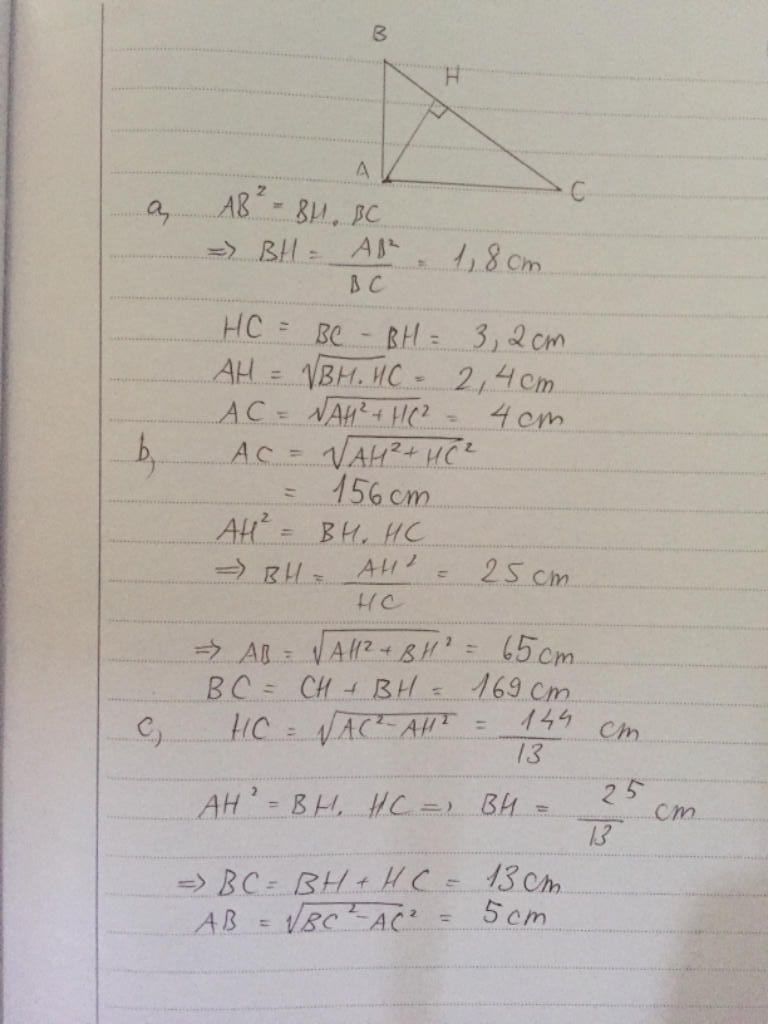 B
H
A
C
a, AB² = BH. BC
=> BH = AB²/BC = 1,8cm
HC = BC - BH = 3,2cm
AH = √BH.HC = 2,4cm
AC = √AH²+HC² = 4cm
b, AC = √AH²+HC²
= 156cm
AH² = BH. HC
=> BH = AH²/HC = 25cm
=> AB = √AH²+BH² = 65cm
BC = CH + BH = 169cm
c, HC = √AC²-AH² = 144/13 cm
AH² = BH. HC => BH = 25/13 cm
=> BC = BH + HC = 13cm
AB = √BC²-AC² = 5cm